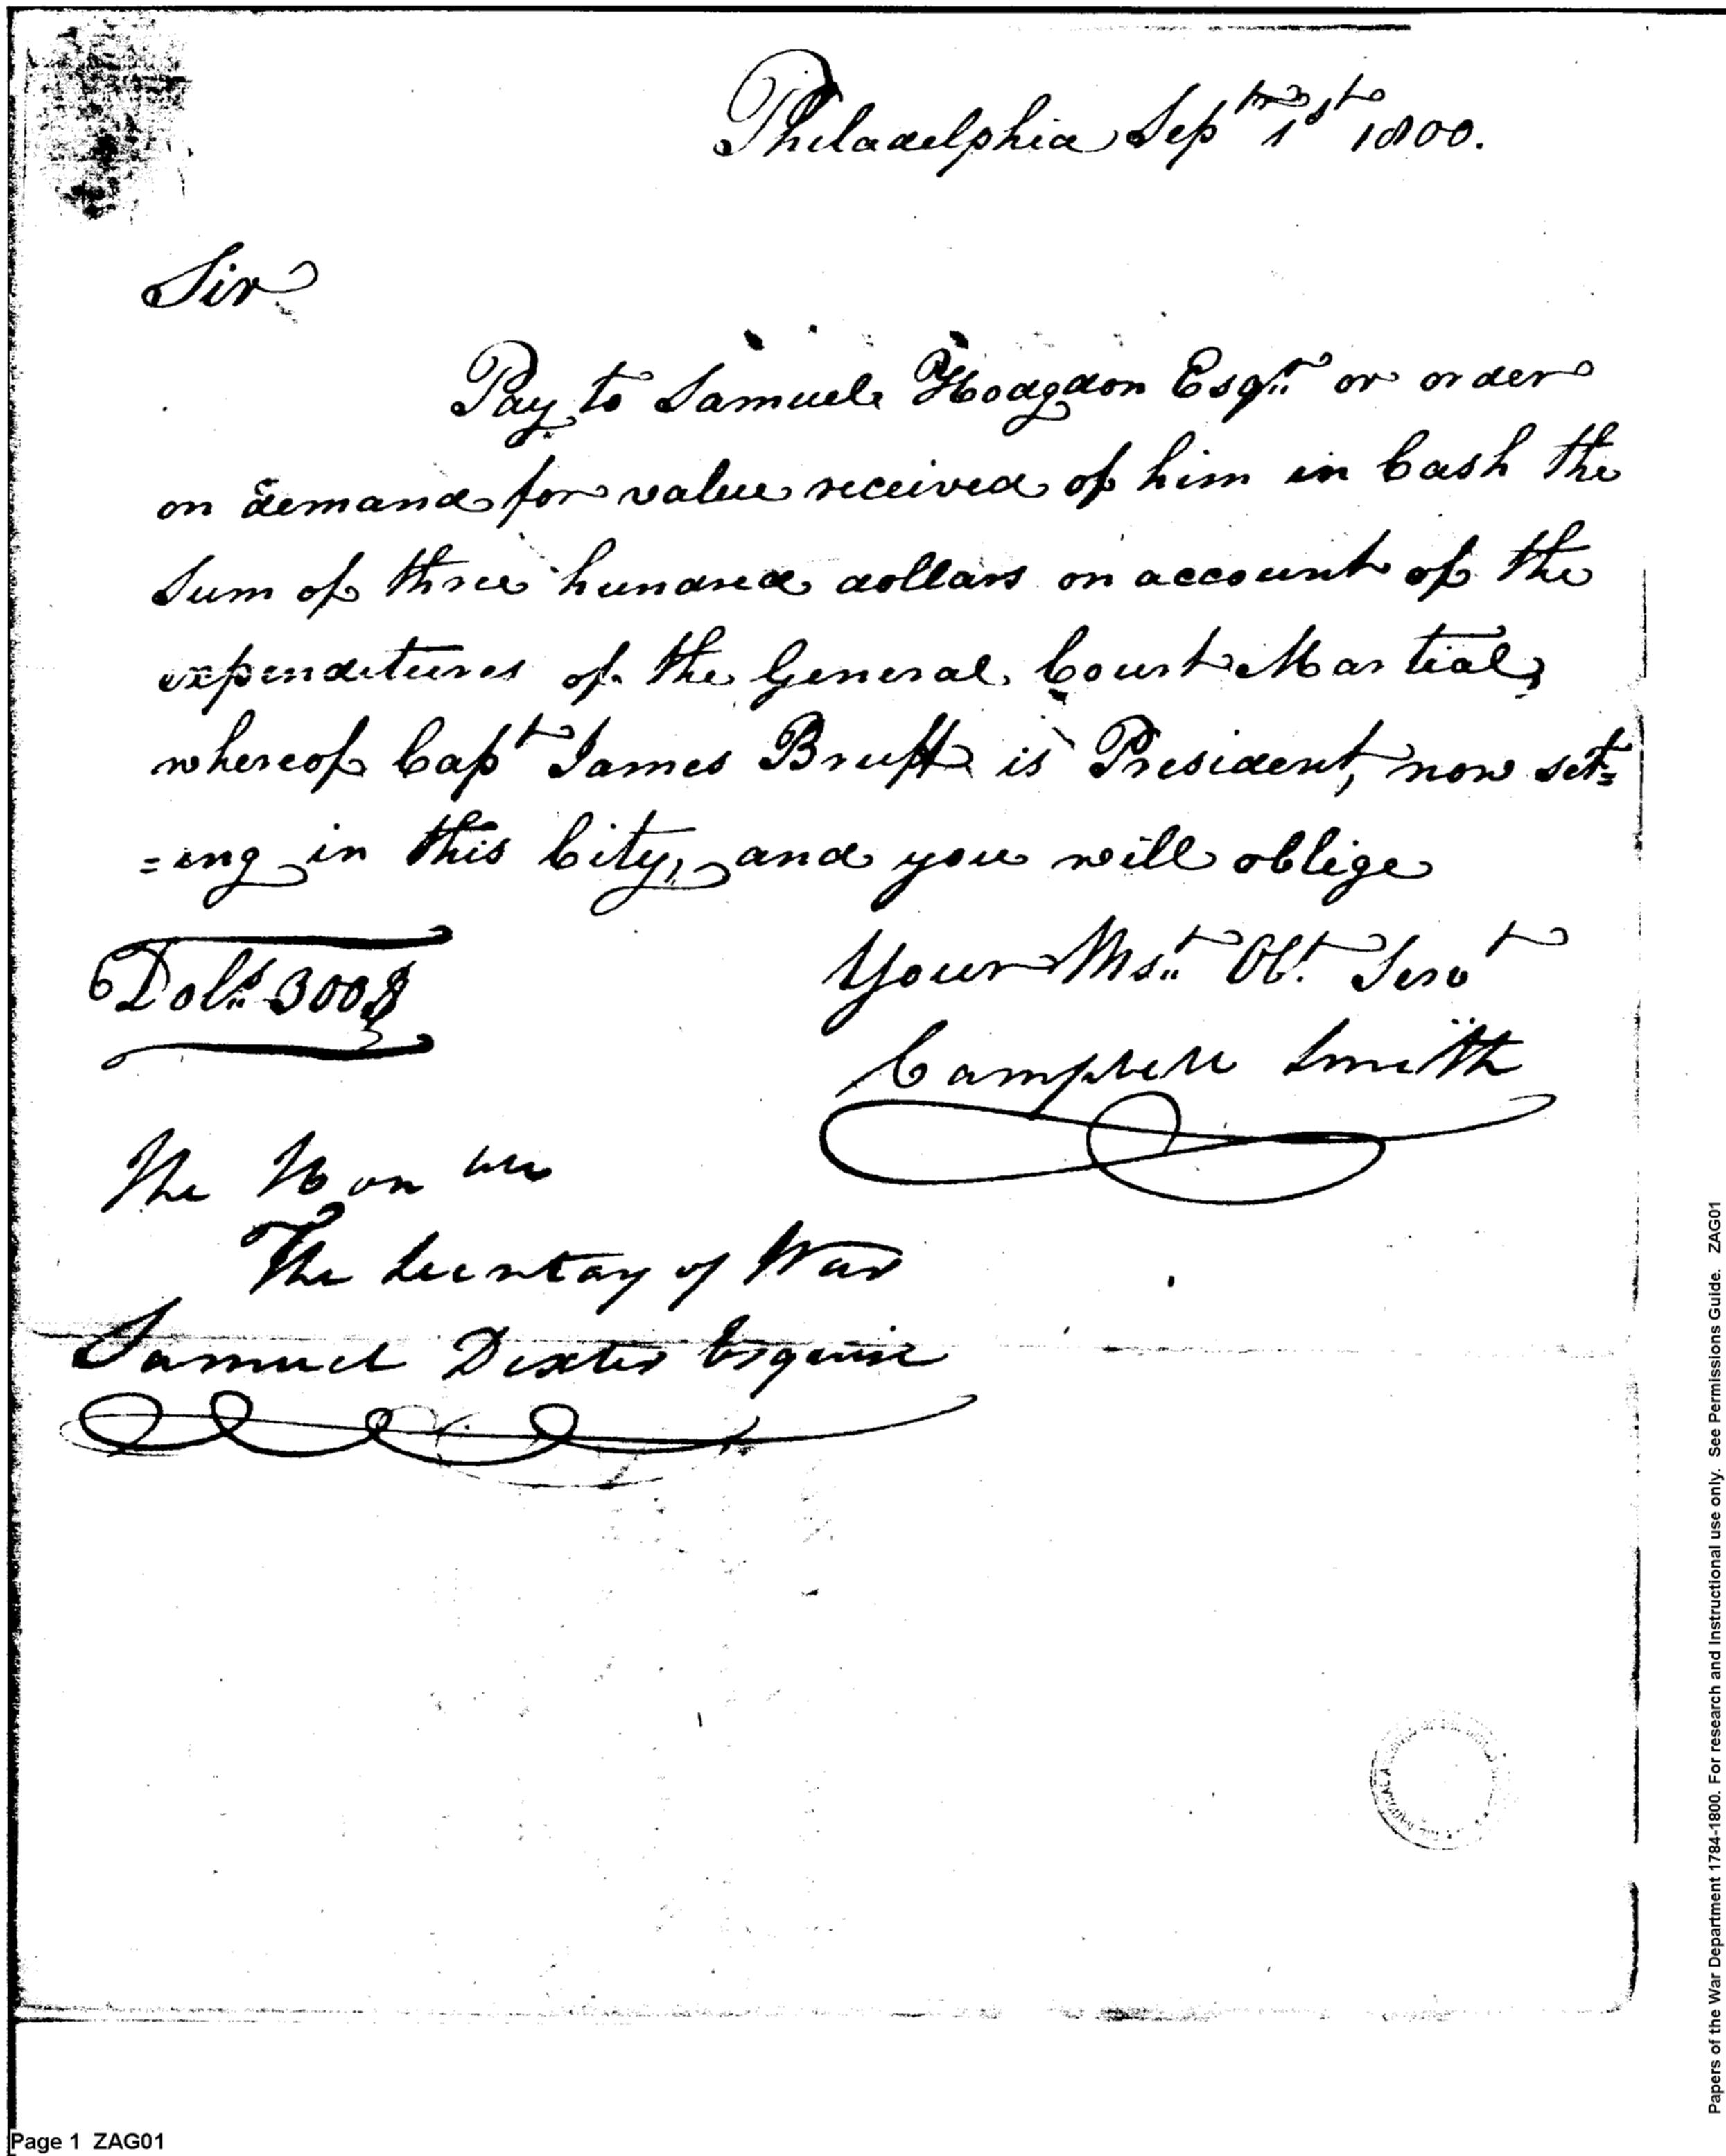 Philadelphia Sepᵗʳ 1ˢᵗ 1800.
Sir
Pay to Samuel Hodgdon Esqʳ or order
on demand for value received of him in Cash the
Sum of three hundred dollars on account of the
expenditures of the General Court Martial,
whereof Capᵗ James Bruff is President, now set=
=ing in this City, and you will oblige
Dolˢ 300$
Your Msᵗ Obᵗ Servᵗ
Campbell Smith
The Honᵇˡᵉ
The Secretay of War
Samuel Dexter Esquire
Papers of the War Department 1784-1800. For research and Instructional use only. See Permissions Guide. ZAG01
Page 1 ZAG01